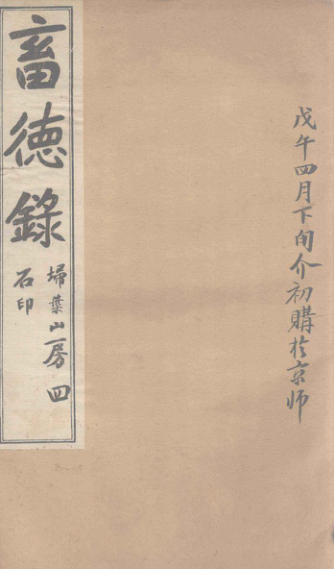 戊午四月下旬介初購於京师
畜德錄
掃葉山房 四
石印